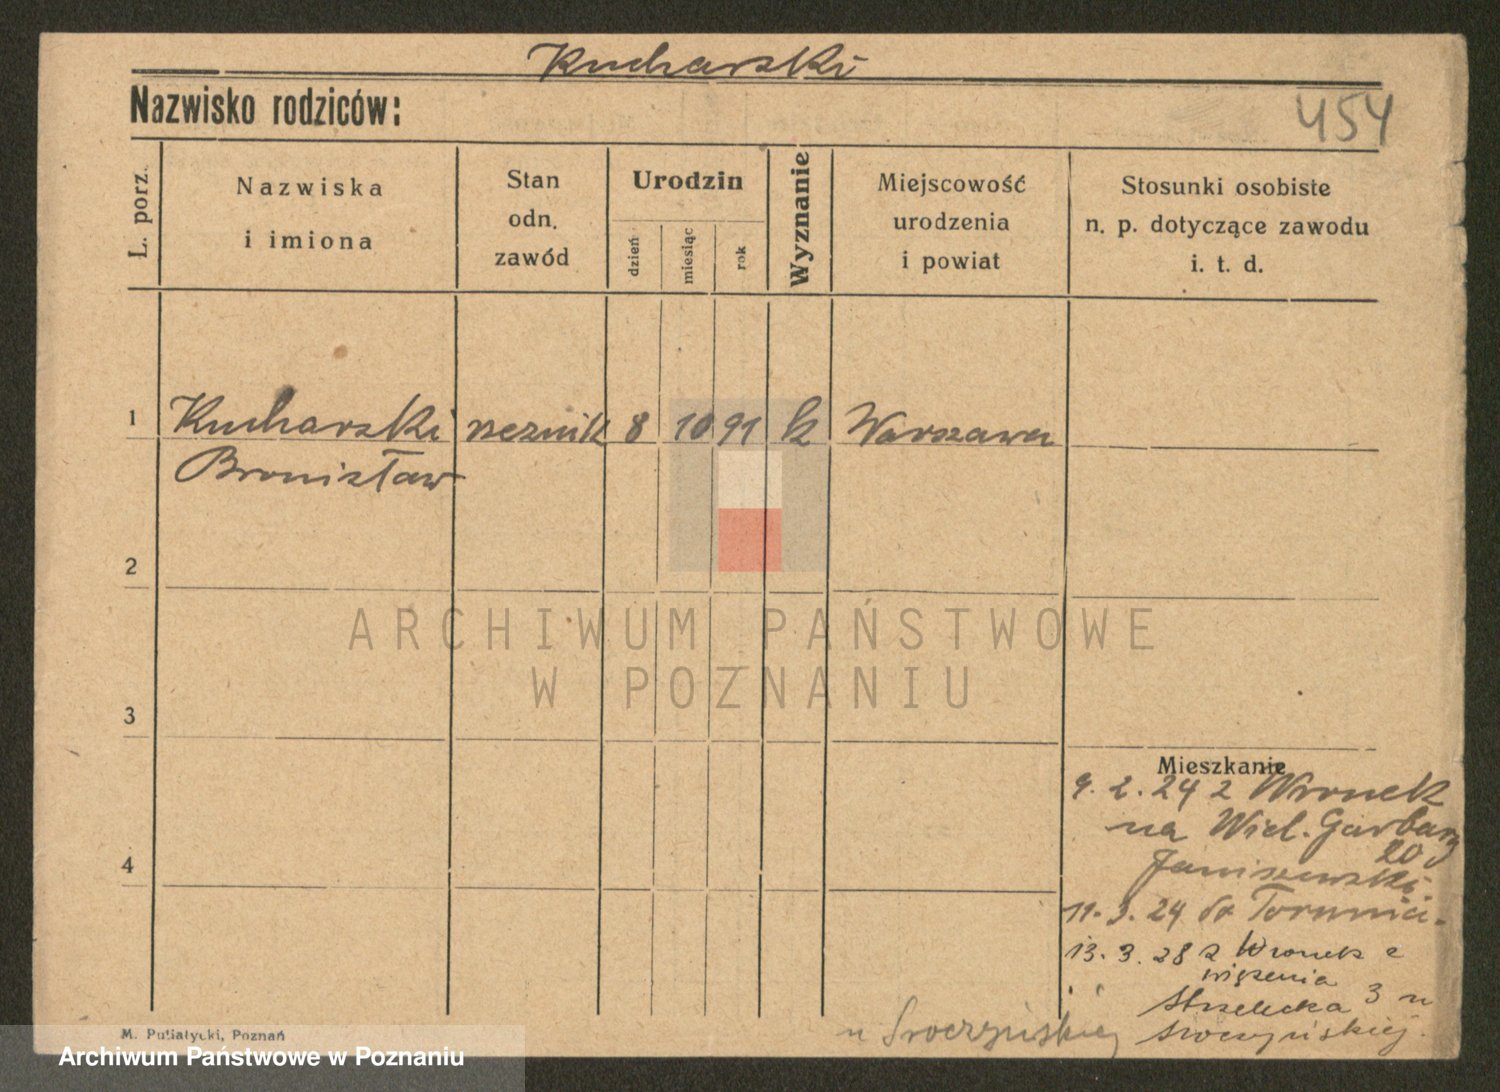 Kucharski
Nazwisko rodziców:
454
L. porz.
Nazwiska
i imiona
Stan
odn.
zawód
Urodzin
dzień
miesiąc
rok
Wyznanie
Miejscowość
urodzenia
i powiat
Stosunki osobiste
n. p. dotyczące zawodu
i. t. d.
1 Kucharski rzeznik 8 10 91 k Warszawa
Bronisław
2
ARCHIWUM PAŃSTWOWE
W POZNANIU
3
Mieszkanie
9. 2. 24 z Wronek
na Wiel. Garbary
20
Janiszewski.
4
11. 3. 24 do Torunia.
13. 3. 28 z Wronek z
więzenia
Strzelecka 3 u
Sroczyńskiej.
u Sroczyńskiej
M. Putiatycki, Poznań
Archiwum Państwowe w Poznaniu